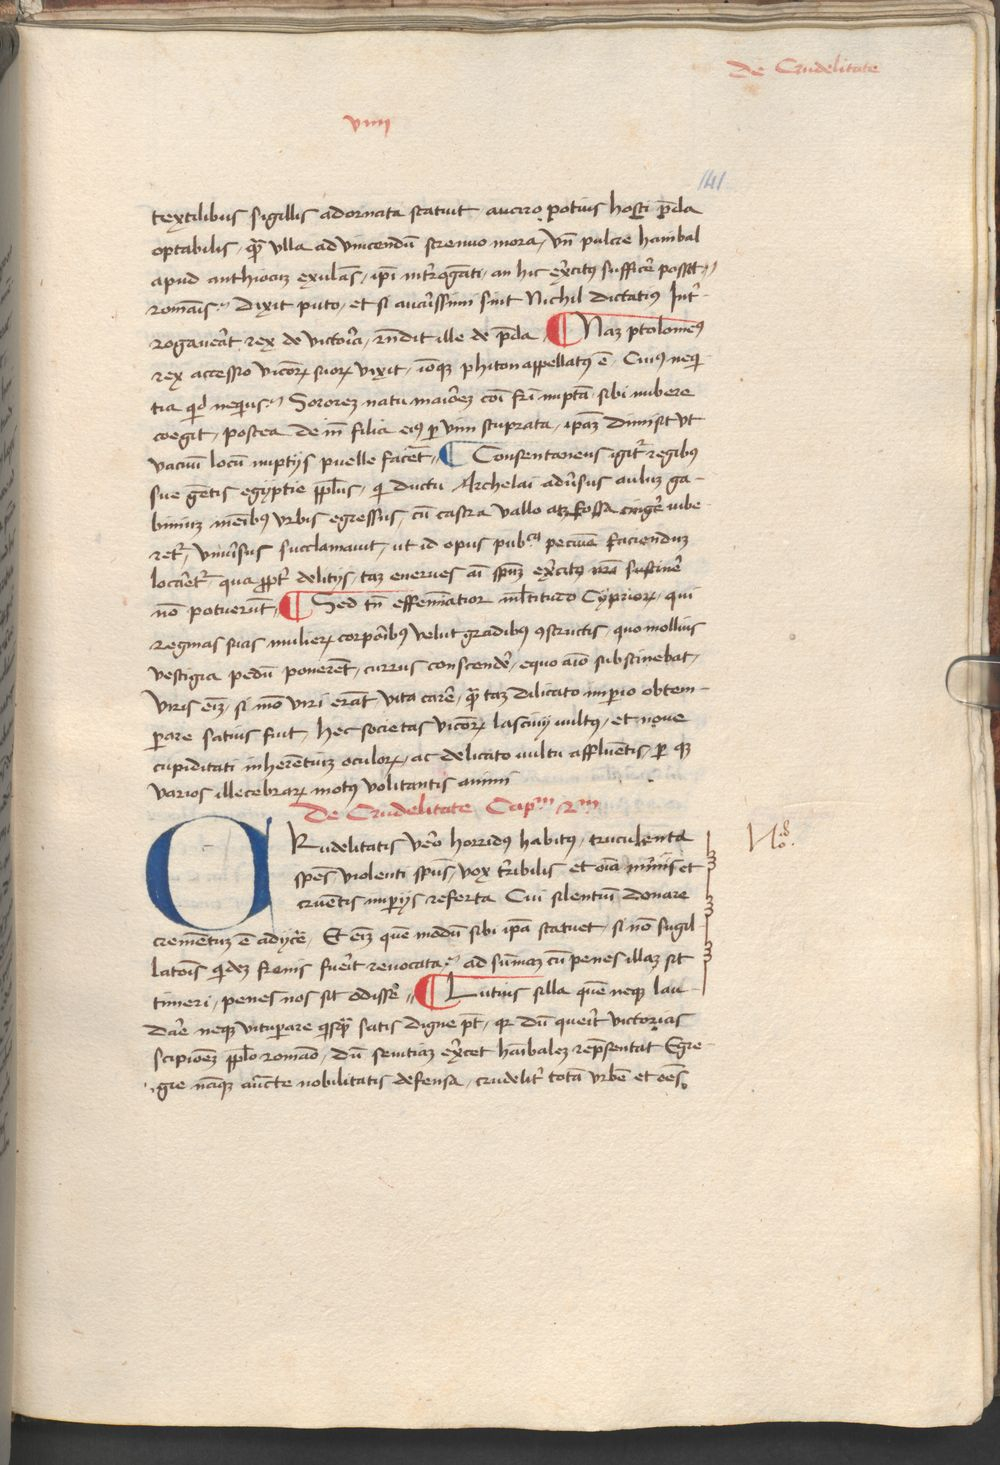 De Crudelitate
viiii
141
textilibus sigillis adornata statuit avaro potius hosti p̄da
optabilis, quā ulla ad vincendū strenuo mora, vn̄ pulcre hanibal
apud anthiocuz exulās, ip̄i int̄rogāti, an hic ex̄citus sufficēr posset
romāis? Dixit puto, et si avarissimi sint Nichil dictatius Int̄r-
rogaverāt rex de victoria, rn̄dit ille de p̄da ¶ Naz ptolomeꝰ
rex accessio vicioꝝ suoꝝ vixit, iōqꝫ phiton appellatꝰ ē, Cuiꝰ neq̄
tia qid nequius? Sororeꝫ natu maiōreꝫ cōi fr̄i nuptā sibi nubere
coegit, postea de īn filia eiꝰ ꝑ vim stuprata, ipāꝫ dimisit ut
vacuū locū nuptijs puelle facēt, ¶ Consentaneus igit᷑ regibꝰ
sue gētis egyptie pp̄lus, qi ductu Archelai adūsus auluꝫ ga-
biniuꝫ menibꝰ urbis egressus, cū castra vallo atqꝫ fossa cingēr iube
ret᷑, univ̄sus succlamavit, ut id opus pub.ca pecunia faciendum
locaēret᷑ qua ꝓpt᷑ delitijs, taꝫ enerves ai spm̄ ex̄citus nr̄a sustinēr
nō potuerūt, ¶ Sed tn̄ effeminatior ml̄titudo Cyprioꝝ, qui
reginas suas mulieꝝ corporibꝰ velut gradibꝰ ꝯstructis, quo mollius
vestigia pedū ponerēt, currus conscendēr, equo aīo substinebat,
viris eniꝫ, si mō viri erāt vita carēr, quā taꝫ dilicato impio obtem-
ꝑare satius fuit, hec societas vicioꝝ lascivij vultꝰ, et nove
cupiditati inherētiuꝫ oculoꝝ, ac delicato cultu affluētis, ꝑ qꝫ
varios illecebraꝝ motꝰ volitantis animi
De Crudelitate Cap.m 2.m
CRudelitatis v̄o horridus habitꝰ, truculenta
sp̄es violenti sp̄us, vox t̄ribilis et oīa minis et
cruētis impijs referta Cui silentiū donare
No.
crementuꝫ ē adycēr, Et eniꝫ quē modū sibi ip̄a statuet, si nō sugil
latoīs qideꝫ frenis fuerit revocata? ad sūmaꝫ cū penes illaꝫ sit
timeri, penes nos sit odissē, ¶ Lutius silla quē neqꝫ lau-
dāre neqꝫ vituꝑare qisqꝫ satis digne pt̄, qꝛ dū querit victorias
scipioneꝫ pp̄lo romāo, dū seuitiaꝫ ex̄cet haībaleꝫ rep̄sentat Egre-
gie nāqꝫ auctte nobilitatis defensa, crudelit᷑ totā urbē et oēs